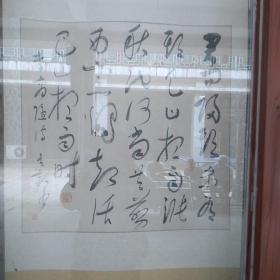 君問歸期未有
期巴山夜雨漲
秋池何當共剪
西窗燭却話
巴山夜雨時
李商隱詩